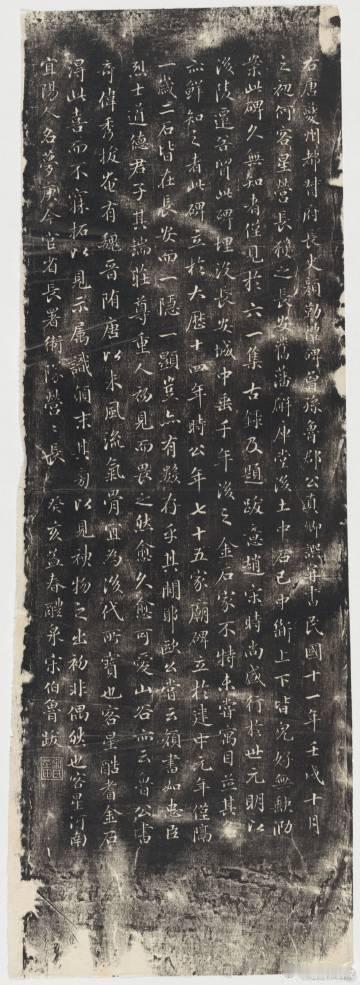 右唐夔州都督府長史顏勤禮碑曾孫魯郡公真卿譔并書民國十一年壬戌十月
之初何客星營長獲之長安舊藩廨庫堂後土中石已中斷上下皆完好無缺泐
案此碑久無知者僅見於六一集古錄及題跋意趙宋時尚盛行於世元明以
後陵遷谷變此碑埋沒長安城中垂千年後之金石家不特未嘗寓目並其
亦鮮知之者此碑立於大曆十四年時公年七十五家廟碑立於建中元年僅隔
一歲二石皆在長安而一隱一顯豈亦有數存乎其間耶歐公嘗云顏書如忠臣
烈士道德君子其端莊尊重人初見而畏之然愈久愈可愛山谷亦云魯公書
奇偉秀拔奄有魏晉隋唐以來風流氣骨宜為後代所寶也客星酷耆金石
得此喜而不寐拓以見示屬識顛末其旁以見神物之出初非偶然也客星河南
宜陽人名夢庚今官省長署衛隊營々長 癸亥孟春醴泉宋伯魯跋